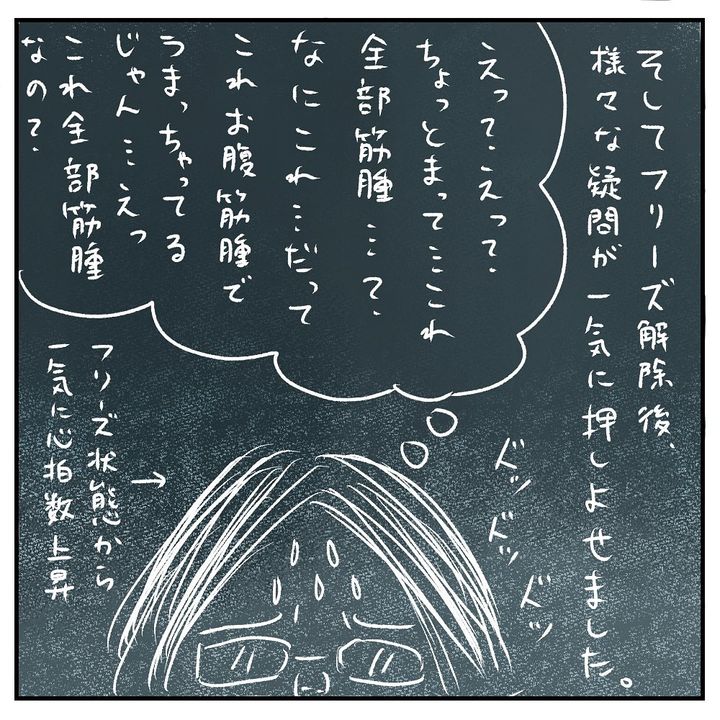 そしてフリーズ解除後、
様々な疑問が一気に押しよせました。
えっ?えっ?
ちょっとまって…これ
全部筋腫…?
なにこれ…だって
これお腹筋腫で
うまっちゃってる
じゃん…えっ
これ全部筋腫
なの?
ドッドッドッ
フリーズ状態から
一気に心拍数上昇
→